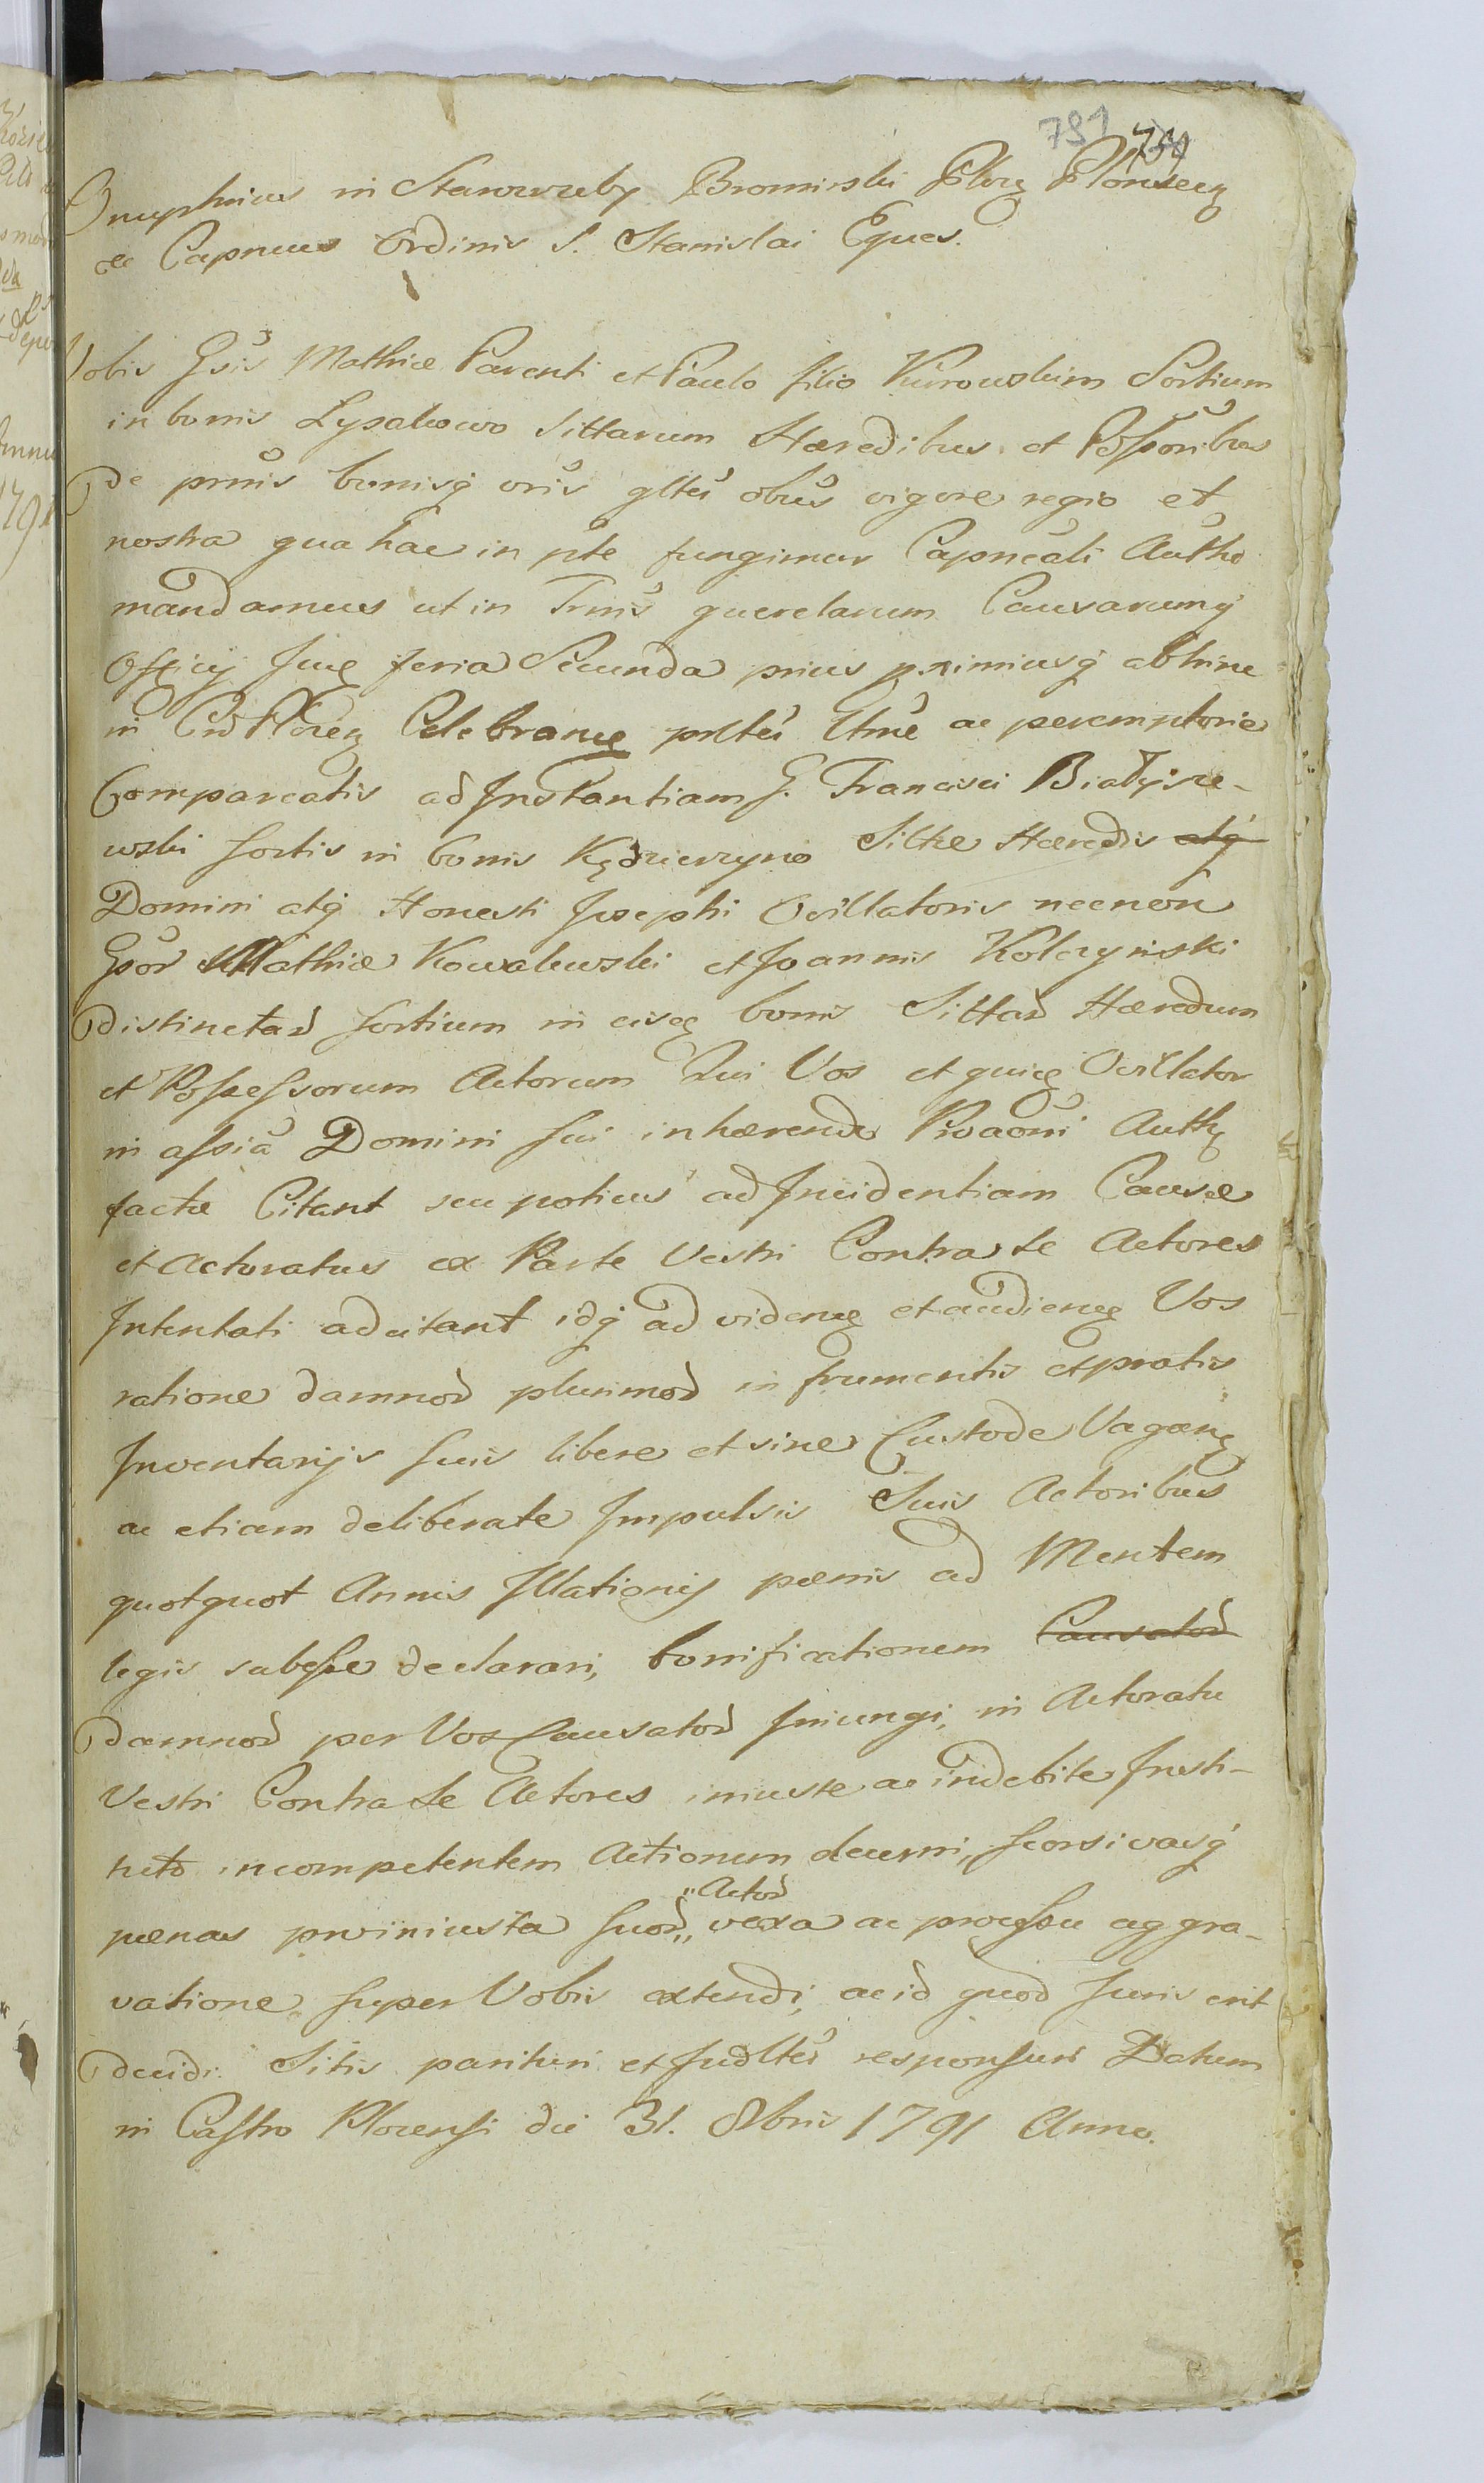 791 759
Onuphrius in Starorzeby Bromirski Ploc Plonsceq
ac Capneus Ordinis S. Stanislai Eques.
Vobis Gsis Mathiæ Parenti et Paulo filio Kurowskim Sortium
in bonis Lysakowo Sittarum Hæredibus et Possoribus
de prnis bonisq vris glter obus vigore regio et
nostra qua hac in pte fungimur Capneali Autho
mandamus ut in Trmis querelarum Causarumq
Officij Jug feria Secunda prius pximiusq abhinc
in Cro Plocen Celebrang prlter Etme ac peremptorie
Compareatis ad Instantiam G. Francisci Białysze-
wski sortis in bonis Kędzierzyno Sittæ Hæredis atq
Domini atq Honesti Josephi Ovillatoris necnon
Gsor Mathiæ Kowalewski et Joannis Kolczynski
distinctar sortium in eisq bonis Sittar Hæredum
et Possessorum Actorum Qui Vos et quiq Ovillator
in assia Domini sui inhærendo Proaoni Auth
factæ Citant seu potius ad Incidentiam Causæ
et Actoratus ex Parte Vestri Contra se Actores
Intentati adcitant idq ad videnq et audienq Vos
ratione damnor plurimor in frumentis et pratis
Inventarijs suis libere et sine Custode Vagang
ac etiam deliberate Impulsis Suis Actoribus
quotquot Annis Illationis pænis ad Mentem
legis subesse declarari, bonificationem Causator
damnor per Vos Causator Iniungi, in Actoratu
Vestri Contra se Actores iniuste ac indebite Insti-
tuto incompetentem Actionem decerni, seorsivasq
pænas pro iniusta suor „Actor vexa ac processu aggra-
vatione super Vobis extendi, ac id quod Juris erit
decidi. Sitis parituri et Judlter responsuri Datum
in Castro Plocensi die 31. 8bris 1791 Anno.